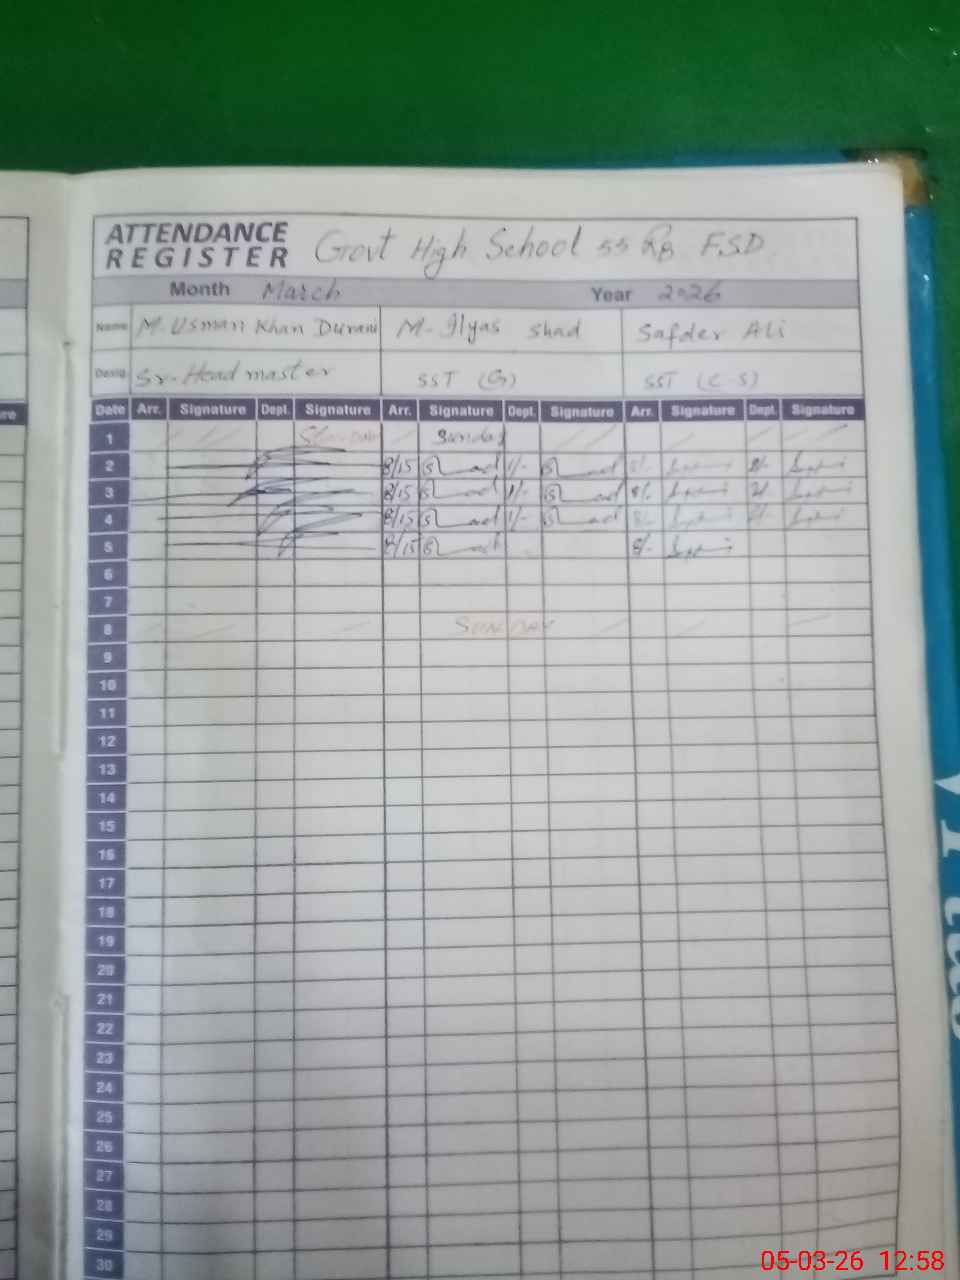 ATTENDANCE REGISTER Govt High School 55 RB F.S.D
Month March Year 2026
Name M. Usman Khan Durani M- Ilyas Shad Safder Ali
Desig. Sr. Head master SST (G) SST (C-S)
re
Date Arr. Signature Dept. Signature Arr. Signature Dept. Signature Arr. Signature Dept. Signature
1 Sunday Sunday
2 8/15 1/-
3 8/15 1/- 8/-
4 8/15 1/- 8/-
5 8/15 8/-
6
7
8 SUNDAY
9
10
11
12
13
14
15
16
17
18
19
20
21
22
23
24
25
26
27
28
29
30
05-03-26 12:58